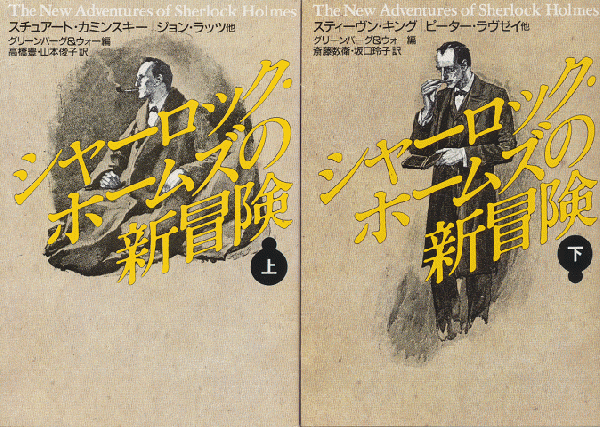 The New Adventures of Sherlock Holmes
スチュアート・カミンスキー|ジョン・ラッツ他
グリーンバーグ&ウォー編
高橋豊・山本俊子訳
シャーロック・
ホームズの
新冒険
上
The New Adventures of Sherlock Holmes
スティーヴン・キング|ピーター・ラヴゼイ他
グリーンバーグ&ウォー編
斎藤数衛・坂口玲子訳
シャーロック・
ホームズの
新冒険
下